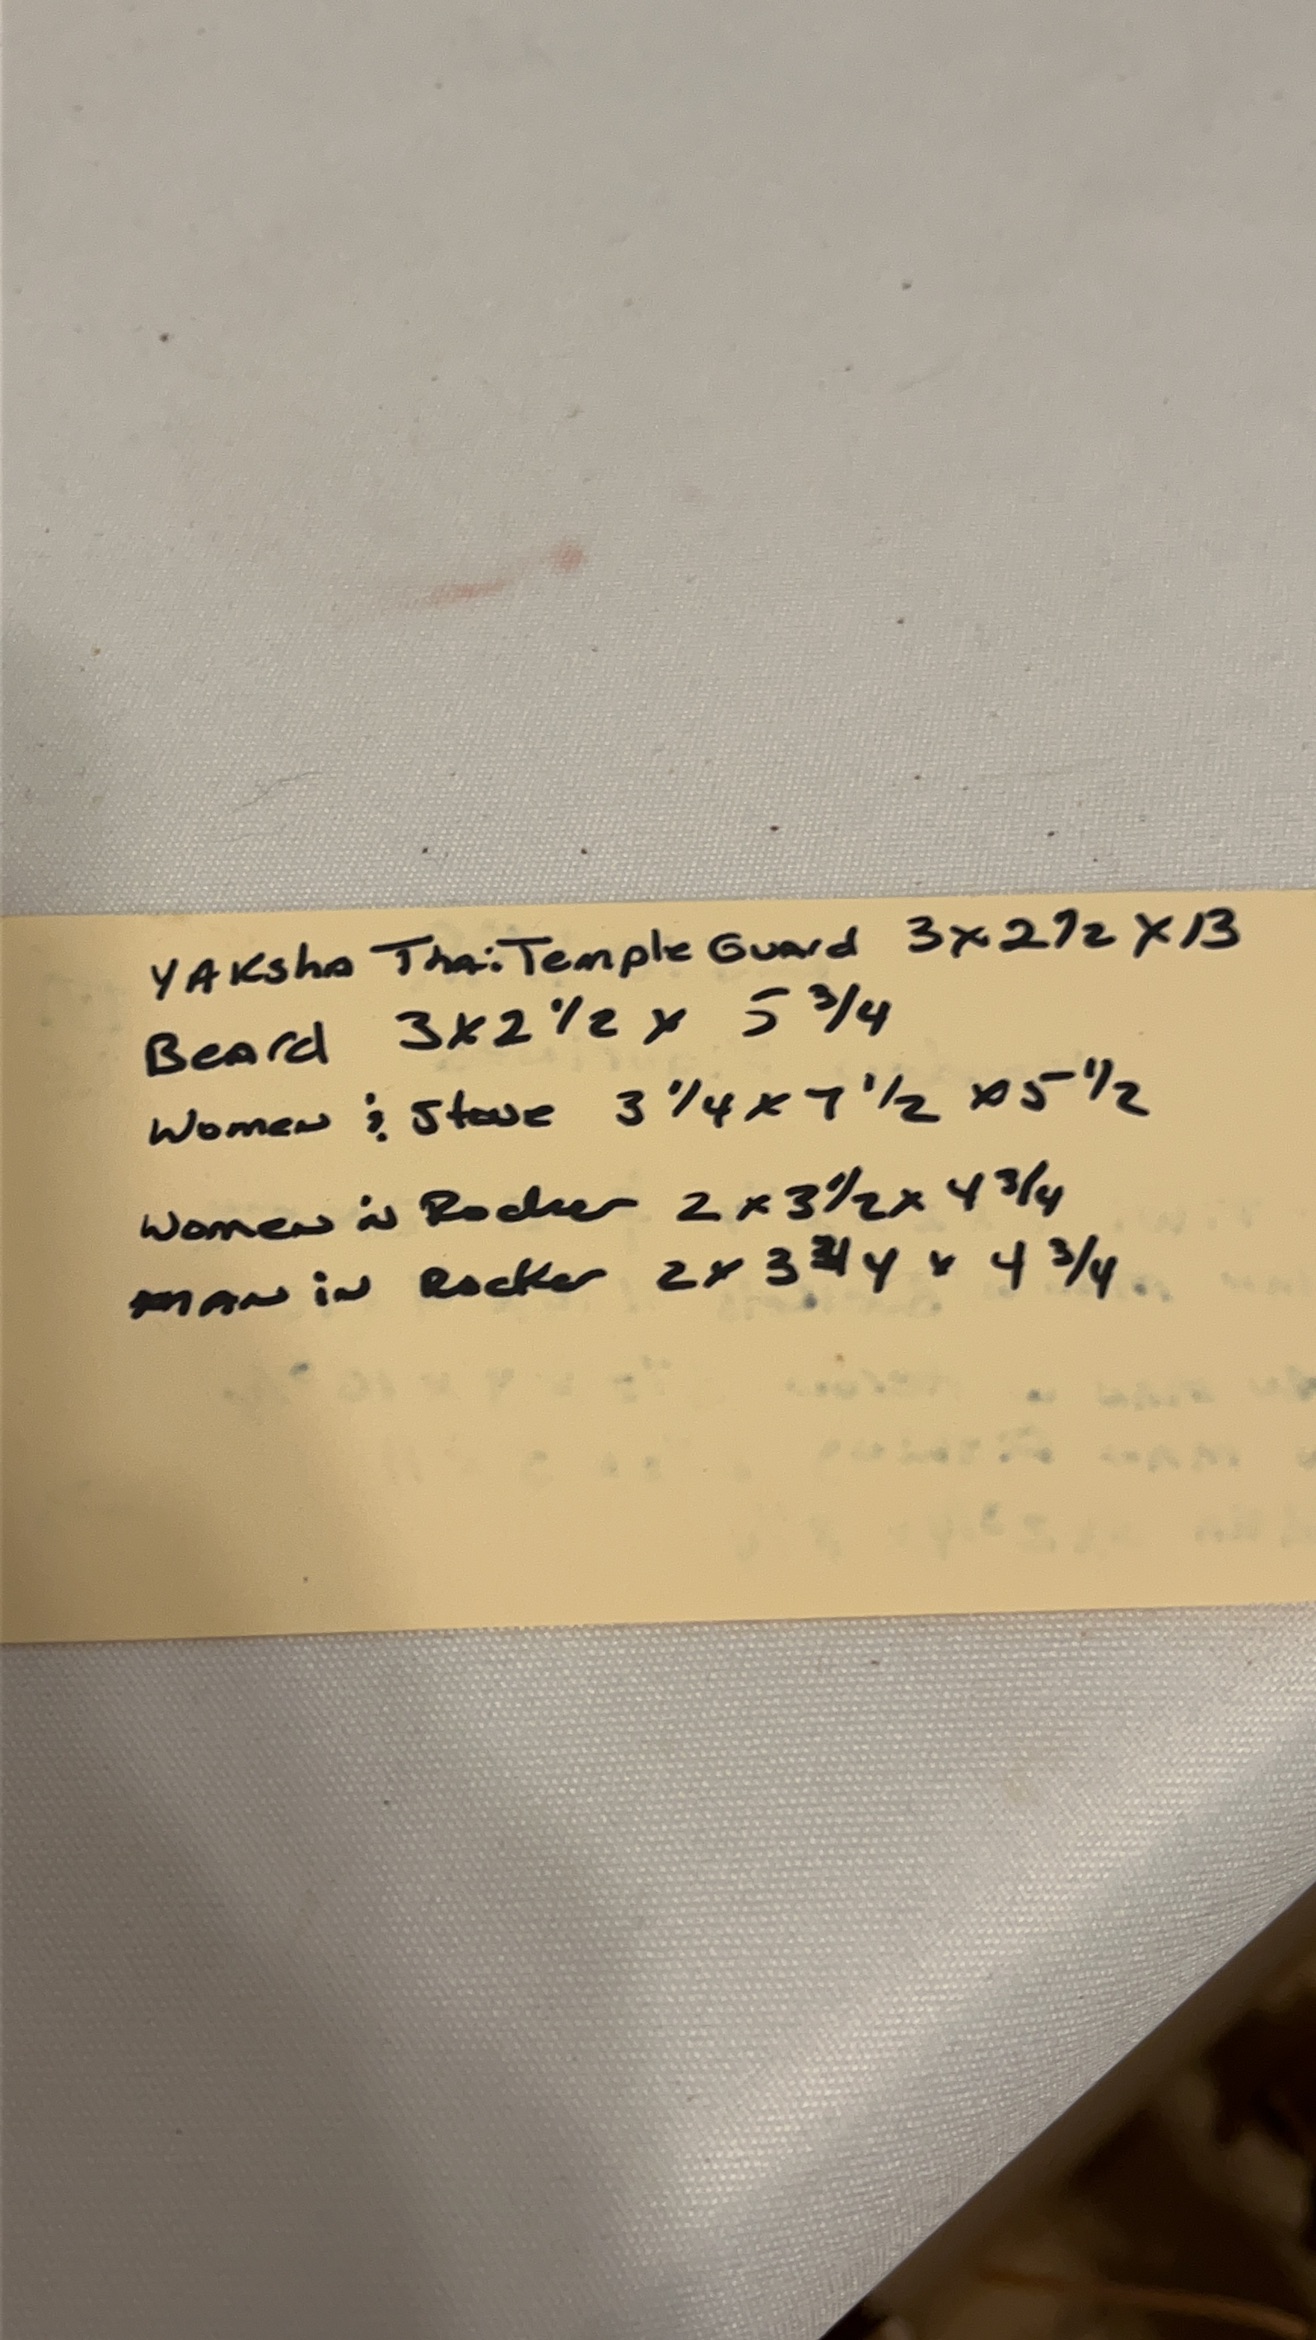 YAKsha Thai Temple Guard 3x2 1/2 x 13
Beard 3x2 1/2 x 5 3/4
Women & Stove 3 1/4 x 7 1/2 x 5 1/2
Women in Rocker 2 x 3 1/2 x 4 3/4
MAN in Rocker 2x 3 3/4 x 4 3/4